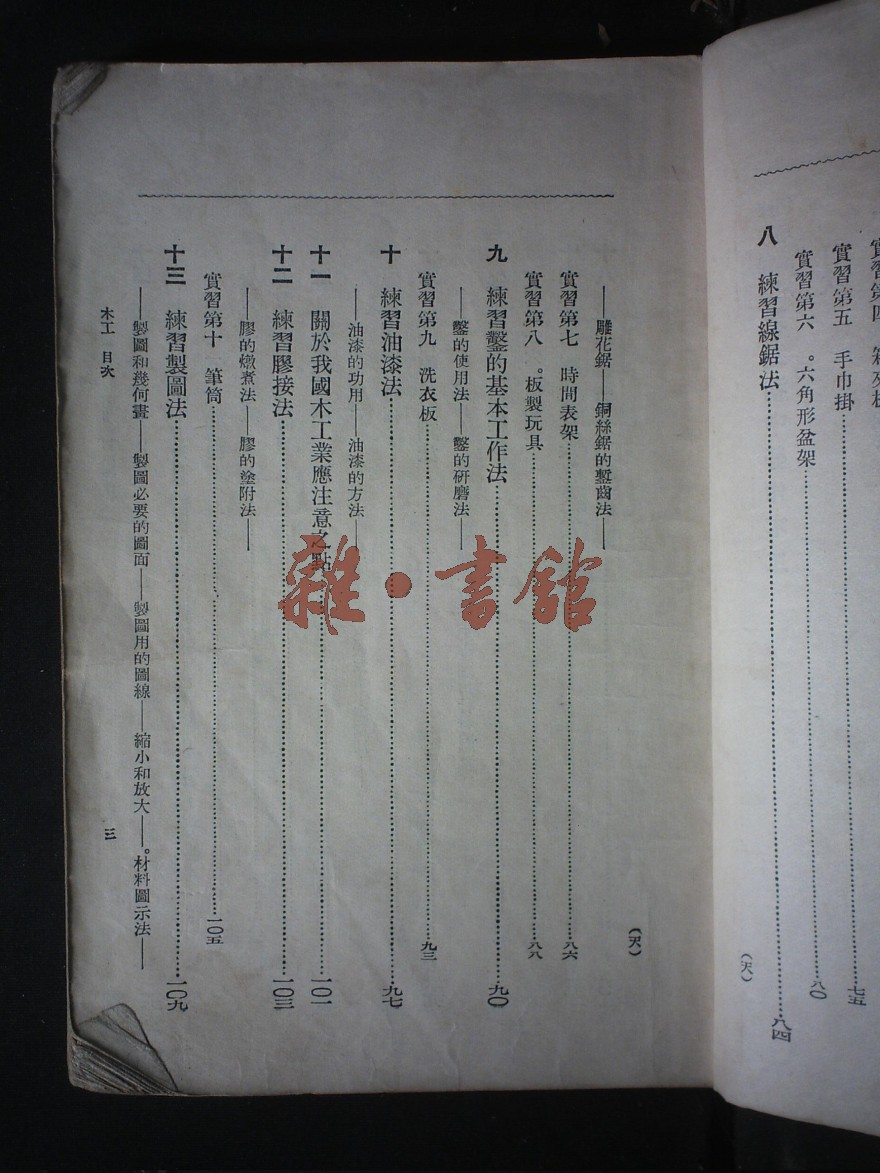 實習第五 手巾掛……七五
實習第六 。六角形盆架……八〇
八 練習線鋸法……八四
(天)
(天)
——雕花鋸——銅絲鋸的鏨齒法——
實習第七 時間表架……八六
實習第八 。板製玩具……八八
九 練習鑿的基本工作法……九〇
——鑿的使用法——鑿的研磨法——
實習第九 洗衣板……九三
十 練習油漆法……九七
——油漆的功用——油漆的方法——
十一 關於我國木工業應注意之點……一〇一
十二 練習膠接法……一〇三
——膠的燉煮法——膠的塗附法——
實習第十 筆筒……一〇五
十三 練習製圖法……一〇九
——製圖和幾何畫——製圖必要的圖面——製圖用的圖線——縮小和放大——。材料圖示法——
木工 目次 三
雜·書館